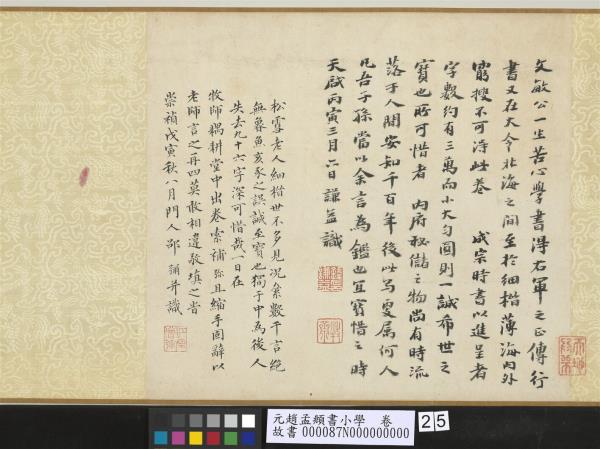 文敏公一生苦心學書得右軍之正傳行
書又在大令北海之間至於細楷薄海內外
窮搜不可得此卷 成宗時書以進呈者
字數約有三萬而小大勻圓則一誠希世之
寶也所可惜者 內府秘儲之物尚有時流
落于人間安知千百年後此寫更屬何人
凡吾子孫當以余言為鑑也宜寶惜之時
天啟丙寅三月六日謙益識
松雪老人細楷世不多見況纍數千言絕
無魯魚亥豕之誤誠至寶也獨于中為後人
失去九十六字深可惜哉一日在
牧師耦耕堂中出卷索補弥且縮手固辭以
老師言之再四莫敢相違敬填之耳
崇禎戊寅秋八月門人邵彌並識
元趙孟頫書小學 卷
故書 000087N000000000
25